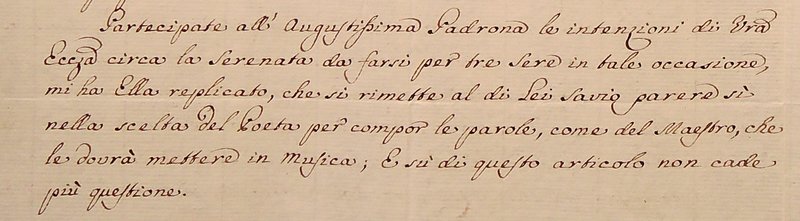 Partecipate all' Augustissima Padrona le intenzioni di Vrã
Eccza circa la Serenata da farsi per tre sere in tale occasione,
mi ha Ella replicato, che si rimette al di Lei savio parere sì
nella scelta del Poeta per compor le parole, come del Maestro, che
le dovrà mettere in Musica; E sù di questo articolo non cade
più questione.